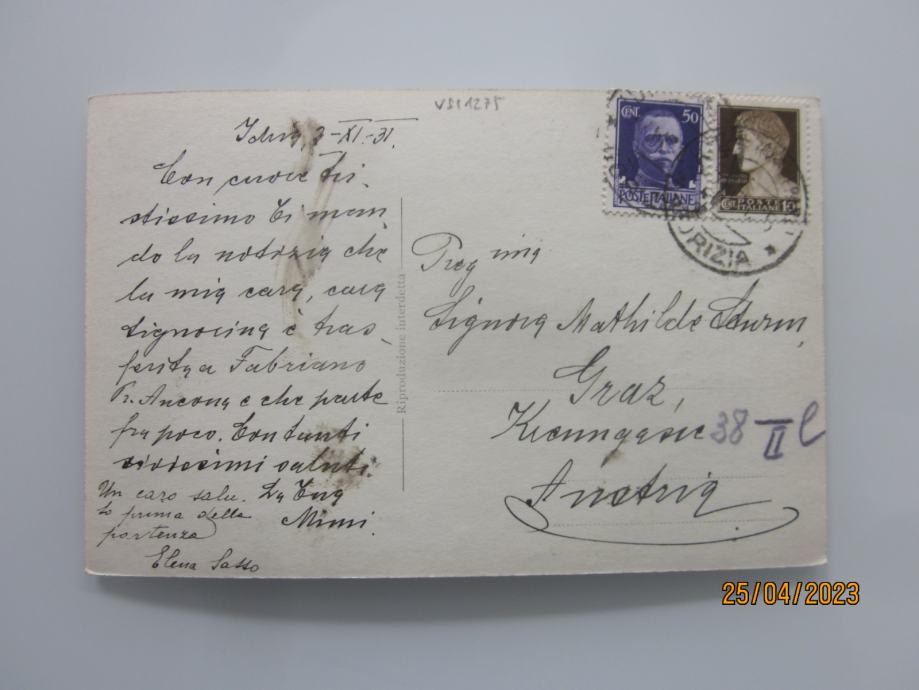 VSI1275
Idria, 3-XI-31.
Con cuore tri-
stissimo Ti man
do la notizia che
la mia cara, cara
signorina è tras
ferita a Fabriano
Pr. Ancona e che parte
fra poco. Con tanti
carissimi saluti.
La Tua
Mimi.
Un caro salu-
to prima della
partenza
Elena Sasso
Riproduzione interdetta
CENT. 50
POSTE ITALIANE
POSTE
ITALIANE
CENT 10
ORIZIA
Preg ma
Signora Mathilde Sturm,
Graz,
38 II
Austria
25/04/2023